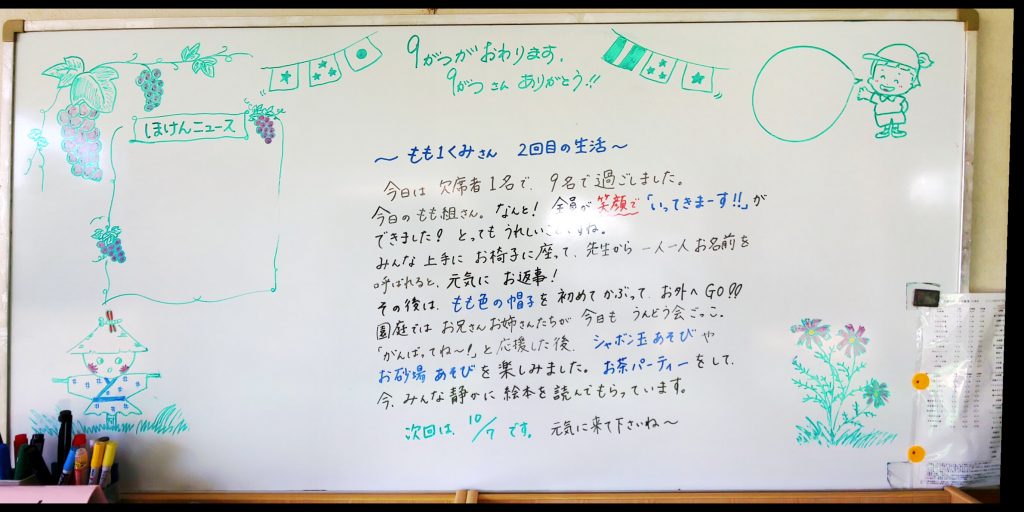 9がつがおわります。
9がつさん ありがとう!!
ほけんニュース
～ もも1くみさん 2回目の生活～
今日は 欠席者1名で、9名で過ごしました。
今日の もも組さん。なんと! 全員が 笑顔で「いってきまーす!!」が
できました! とっても うれしい ですね。
みんな 上手に お椅子に座って、先生から 一人一人 お名前を
呼ばれると、元気に お返事!
その後は、もも色の帽子を 初めて かぶって、お外へ GO!!
園庭では お兄さんお姉さんたちが 今日も うんどう会ごっこ。
「がんばってね～!」と応援した後、シャボン玉あそびや
お砂場あそびを楽しみました。お茶パーティーをして、
今、みんな静かに 絵本を読んでもらっています。
次回は、10/7 です。元気に来て下さいね～